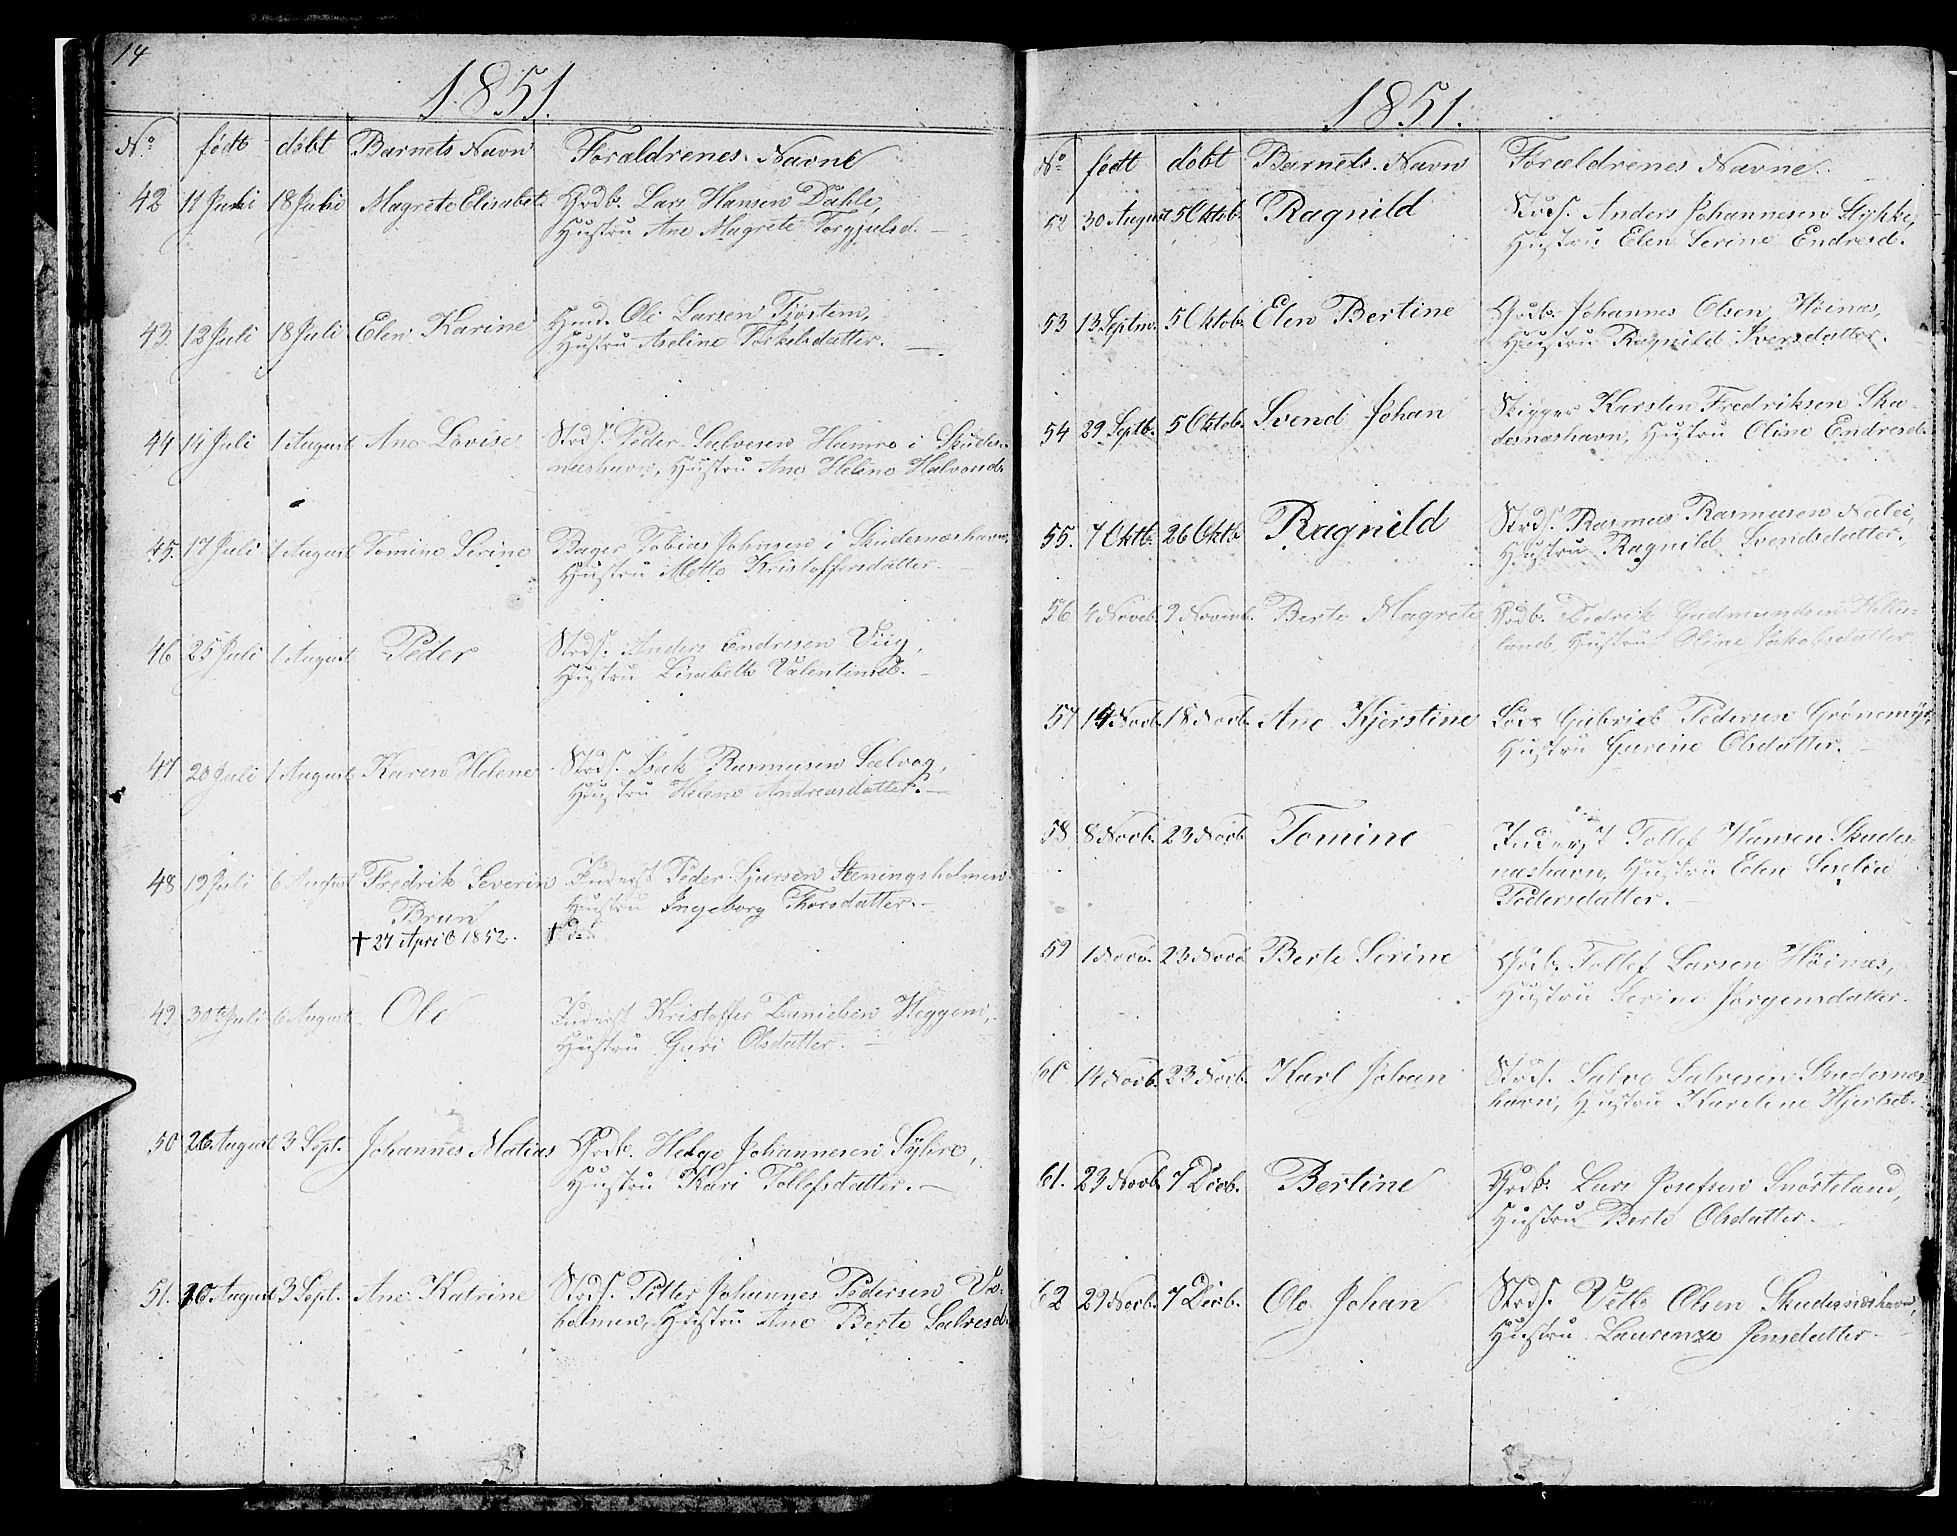 14
1851.
No. født døbt Barnets Navn Forældrenes Navne
42 11 Juli 18 Juli Magrete Elisabet Grdb. Lars Hansen Dahle,
Hustru Ane Magrete Torgjulsd. —
43. 12 Juli 18 Juli Elen Karine Hmd. Ole Larsen Tjøstem,
Hustru Aseline Torkelsdatter. —
44 14 Juli 1 August Ane Lovise Strds. Peder Salvesen Hamre i Skudes-
næshavn, Hustru Ane Heline Halvorsd.
45. 17 Juli 1 August Tomine Serine Bager Tobias Johnsen i Skudesnæshavn,
Hustru Mette Kristoffersdatter. —
46 25 Juli 1 August Peder Strds. Anders Endresen Viig,
Hustru Lisabette Valentinsd. —
47 20 Juli 1 August Karen Helene Strds. Isak Rasmusen Salvog,
Hustru Helene Andreasdatter. —
48 19 Juli 6 August Fredrik Severin Inderst Peder Sjursen Steningsholmen
Brun Hustru Ingeborg Thorsdatter. —
† 27 April 1852. †
49. 30te Juli 6 August Ole Inderst Kristoffer Danielsen Heggem,
Hustru Guri Olsdatter. —
50 26 August 3 Sept. Johannes Matias Grdb. Helge Johannesen Syhre,
Hustru Kari Tollefsdatter. —
51. 20 August 3 Sept. Ane Katrine Strds. Potter Johannes Pedersen Vo-
holmen, Hustru Ane Berte Salvesd.
1851.
No. født døbt Barnets Navn Forældrenes Navne.
52 30 August 5 Oktob. Ragnild Strds. Anders Johannesen Stykke,
Hustru Elen Serine Endresd.
53 13 Septm. 5 Oktob. Elen Bertine Grdb. Johannes Olsen Høinæs,
Hustru Ragnild Iversdatter.
54 29 Septb. 5 Oktob. Svend Johan Skipper Karsten Fredriksen Sku-
desnæshavn, Hustru Oline Endresd.
55. 7 Oktb. 26 Oktb. Ragnild Strds. Rasmus Rasmusen
Hustru Ragnild Svendsdatter.
56 4 Noveb. 9 Novemb. Berte Magrete Grdb. Didrik Gudmundsen Helle-
land, Hustru Oline Jakobsdatter
57 14 Novb. 18 Novb. Ane Kjerstine Gabriel Pedersen Grønemyr,
Hustru Gurine Olsdatter. —
58. 8 Novb. 23 Novb. Tomine Inderst Tollef Hansen Skudes-
næshavn, Hustru Elen Serelia
Pedersdatter. —
59 1 Novb. 23 Novb. Berte Serine Grdb. Tollef Larsen Høinæs,
Hustru Serine Jørgensdatter.
60 14 Novb. 23 Novb. Karl Johan Strds. Salve Salvesen Skudesnæs-
havn, Hustru Kareline Hjertsd.
61. 23 Novb. 7 Decb. Bertine Grdb. Lars Josefsen Snørteland,
Hustru Berte Olsdatter. —
62 29 Novb. 7 Decb. Ole Johan Strds. Olsen Skudesnæshavn,
Hustru Laurenze Jensdatter. —